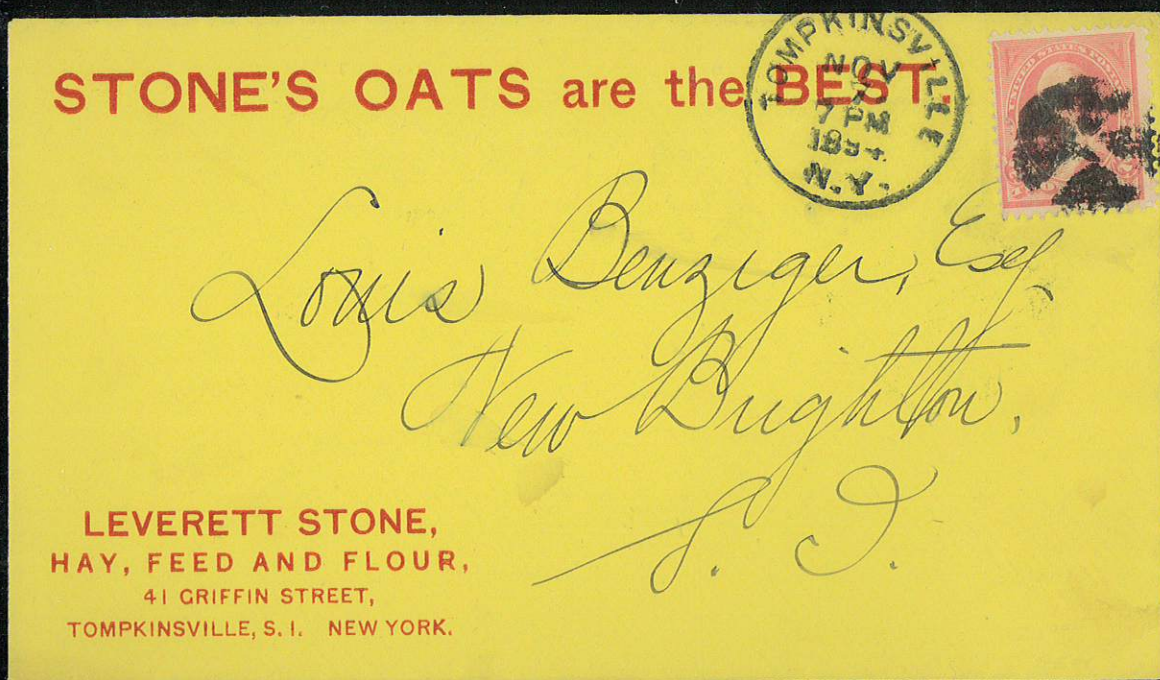 STONE'S OATS are the BEST.
TOMPKINSVILLE
NOV
7 PM
1894
N.Y.
UNITED STATES POSTAGE
Louis Benziger, Esq
New Brighton,
S. I.
LEVERETT STONE,
HAY, FEED AND FLOUR,
41 GRIFFIN STREET,
TOMPKINSVILLE, S. I. NEW YORK.